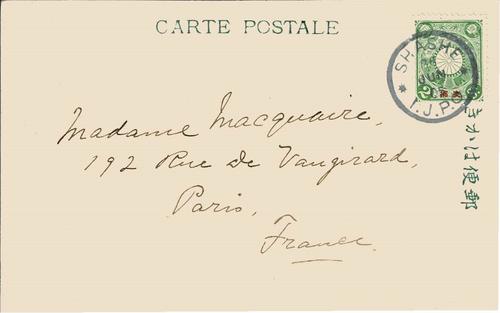 CARTE POSTALE
SHASHE
JUN
I.J.P.O
きかは便郵
Madame Macquaire,
192 Rue de Vaugirard,
Paris,
France.